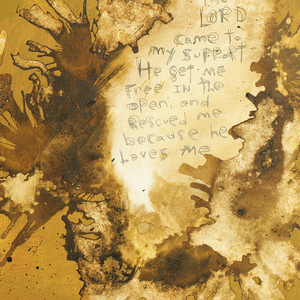 the
LORD
came to
my support
He set me
free in the
open, and
rescued me
because he
loves me